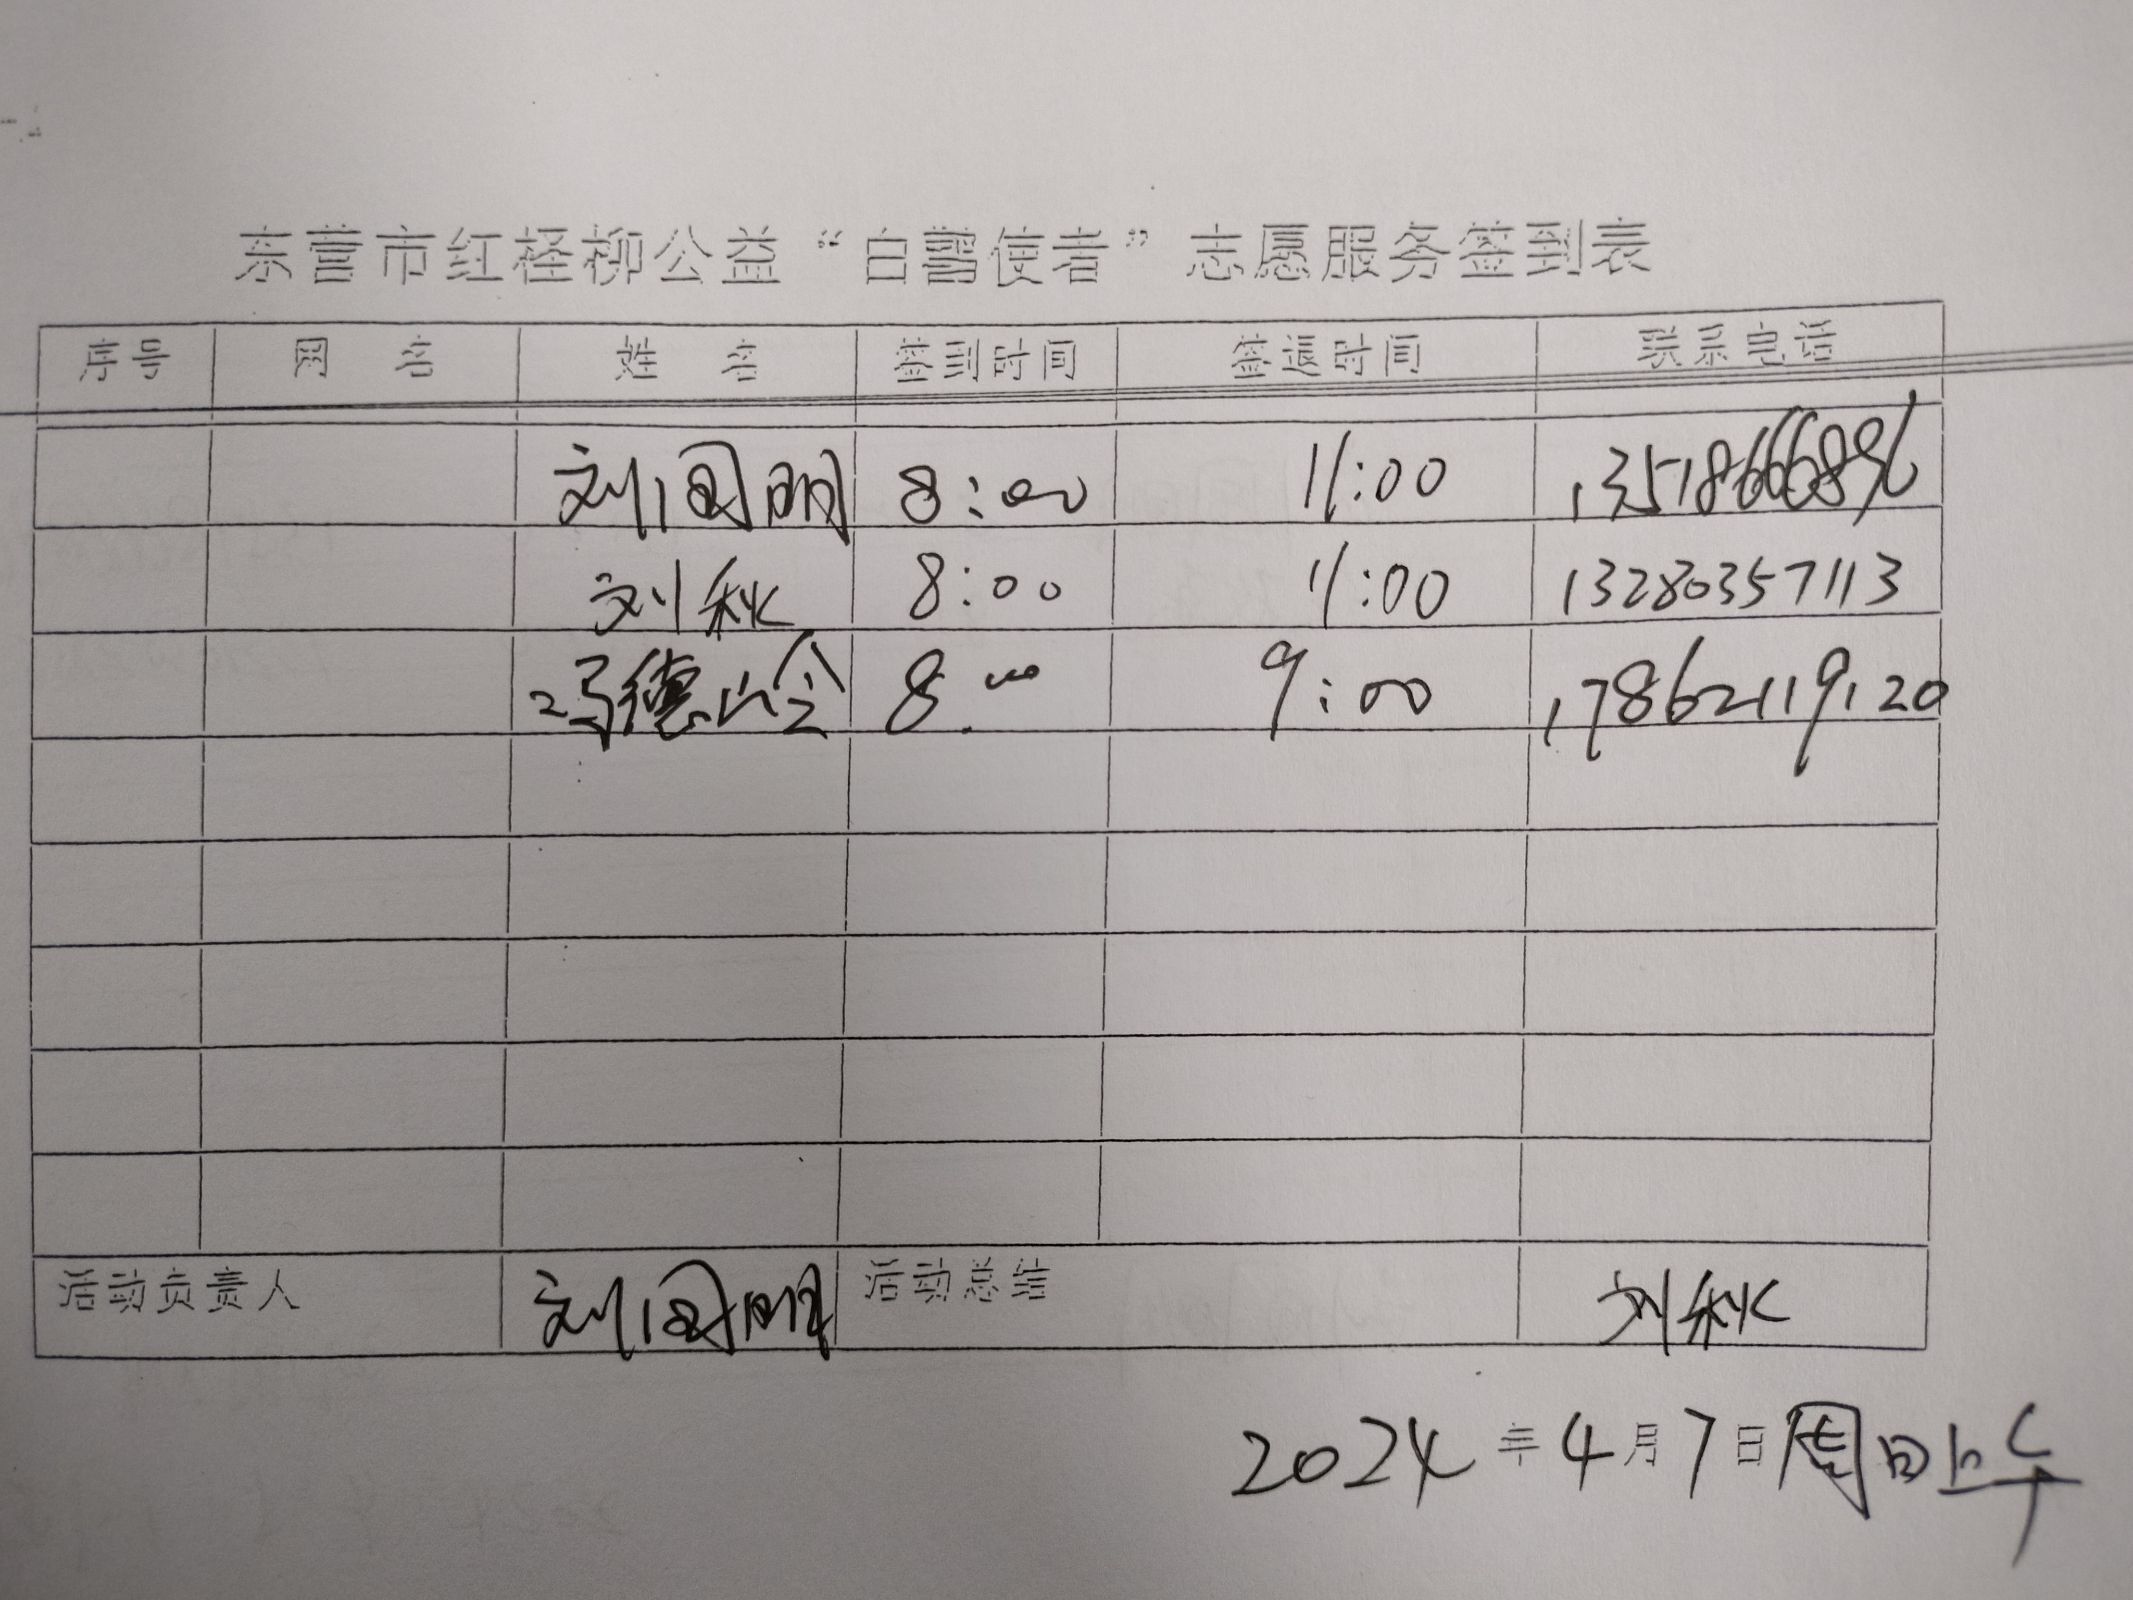 东营市红柽柳公益“白鹭使者”志愿服务签到表
序号 网 名 姓 名 签到时间 签退时间 联系电话
刘国明 8:00 11:00
刘秋 8:00 11:00 13280357113
冯德 8:00 9:00 17862119120
活动负责人 刘国明 活动总结 刘秋
2024年4月7日周日上午